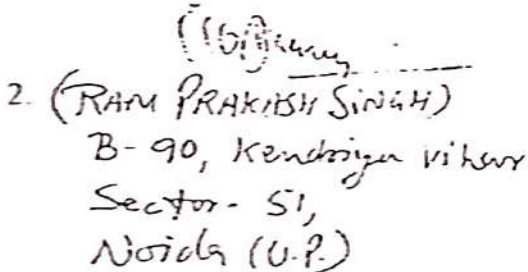 2. (RAM PRAKASH SINGH)
B-90, Kendriya vihar
Sector - 51,
Noida (U.P.)